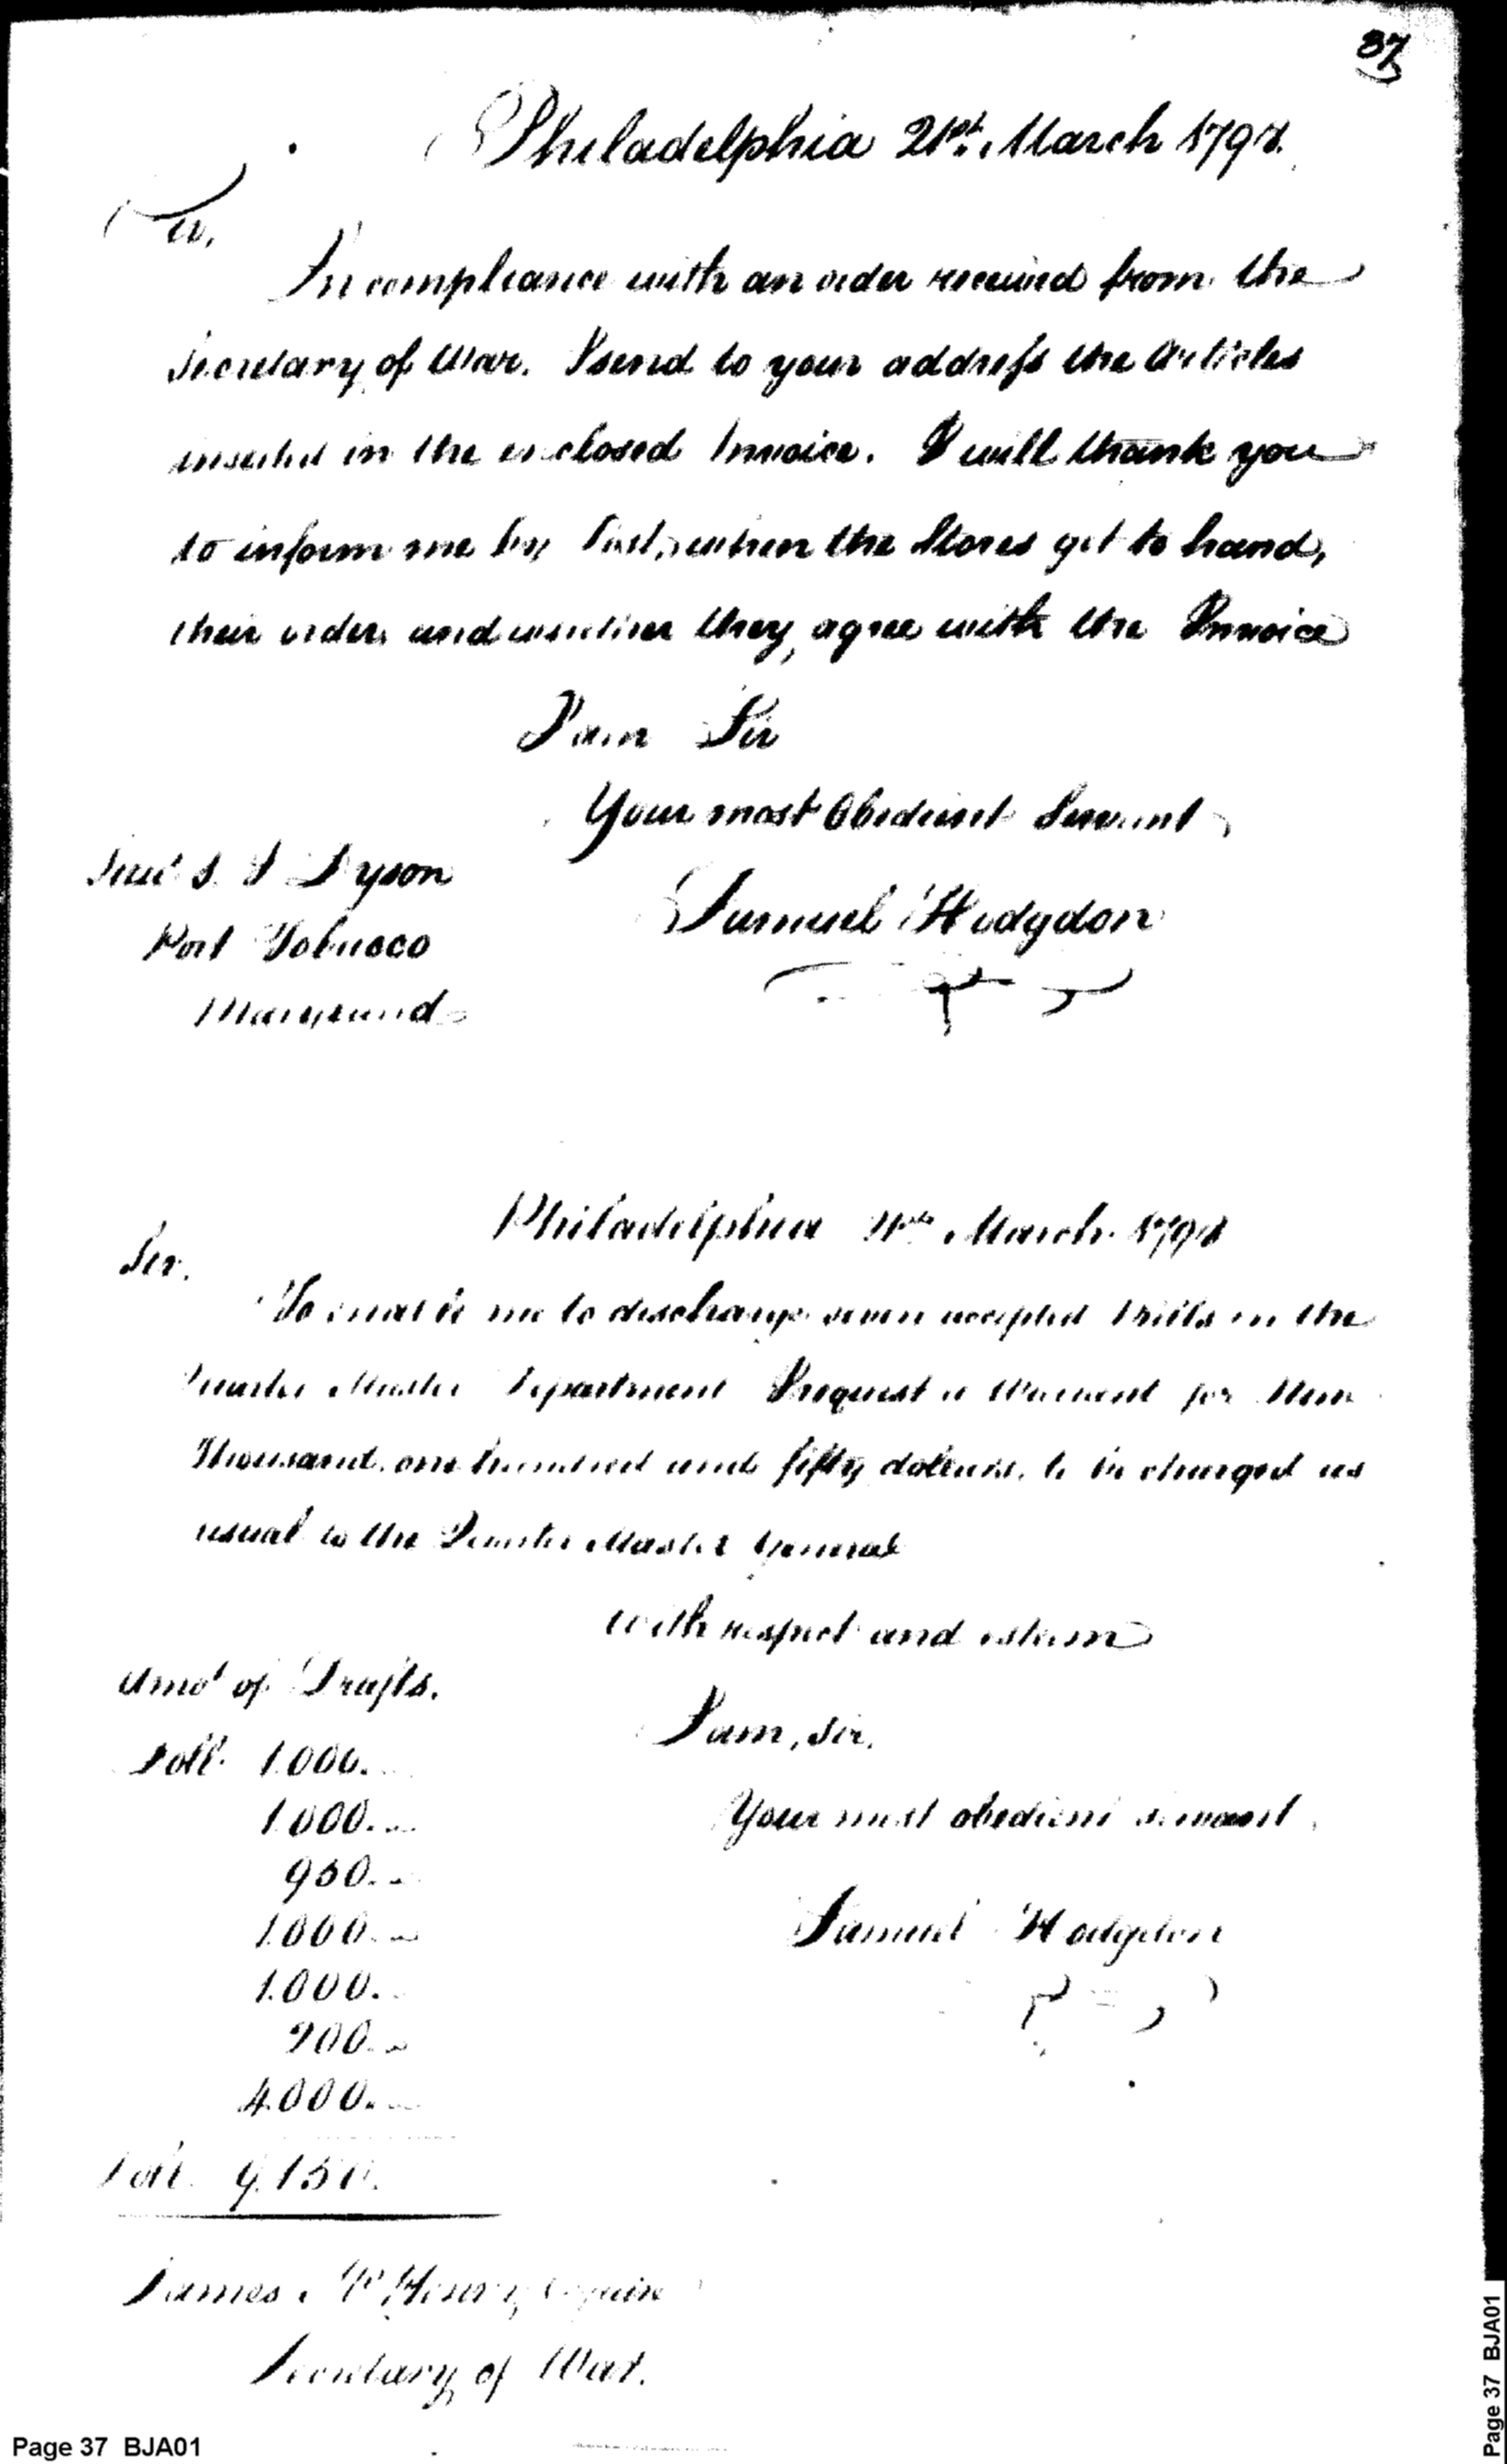 37
Philadelphia 21st. March 1798.
Sir,
In compliance with an order received from the
Secretary of War. I send to your address the Articles
inserted in the enclosed Invoice. I will thank you
to inform me by Post, when the Stores get to hand,
their order, and whether they agree with the Invoice
I am Sir
Your most Obedient Servant,
Samuel Hodgdon
Dyson
Port Tobacco
Maryland
Philadelphia March 1798
Sir.
To enable me to discharge seven accepted Bills in the
Quarter Master Department I request a Warrant for Nine
Thousand, one hundred and fifty dollars, to be charged as
usual to the Quarter Master General
with respect and esteem
I am, Sir.
Your most obedient servant,
Samuel Hodgdon
Amot of Drafts.
Doll. 1.000.
1.000.
950.
1.000.
1.000.
200.
4.000.
Doll. 9.150.
James McHenry Esquire
Secretary of War.
Page 37 BJA01
Page 37 BJA01